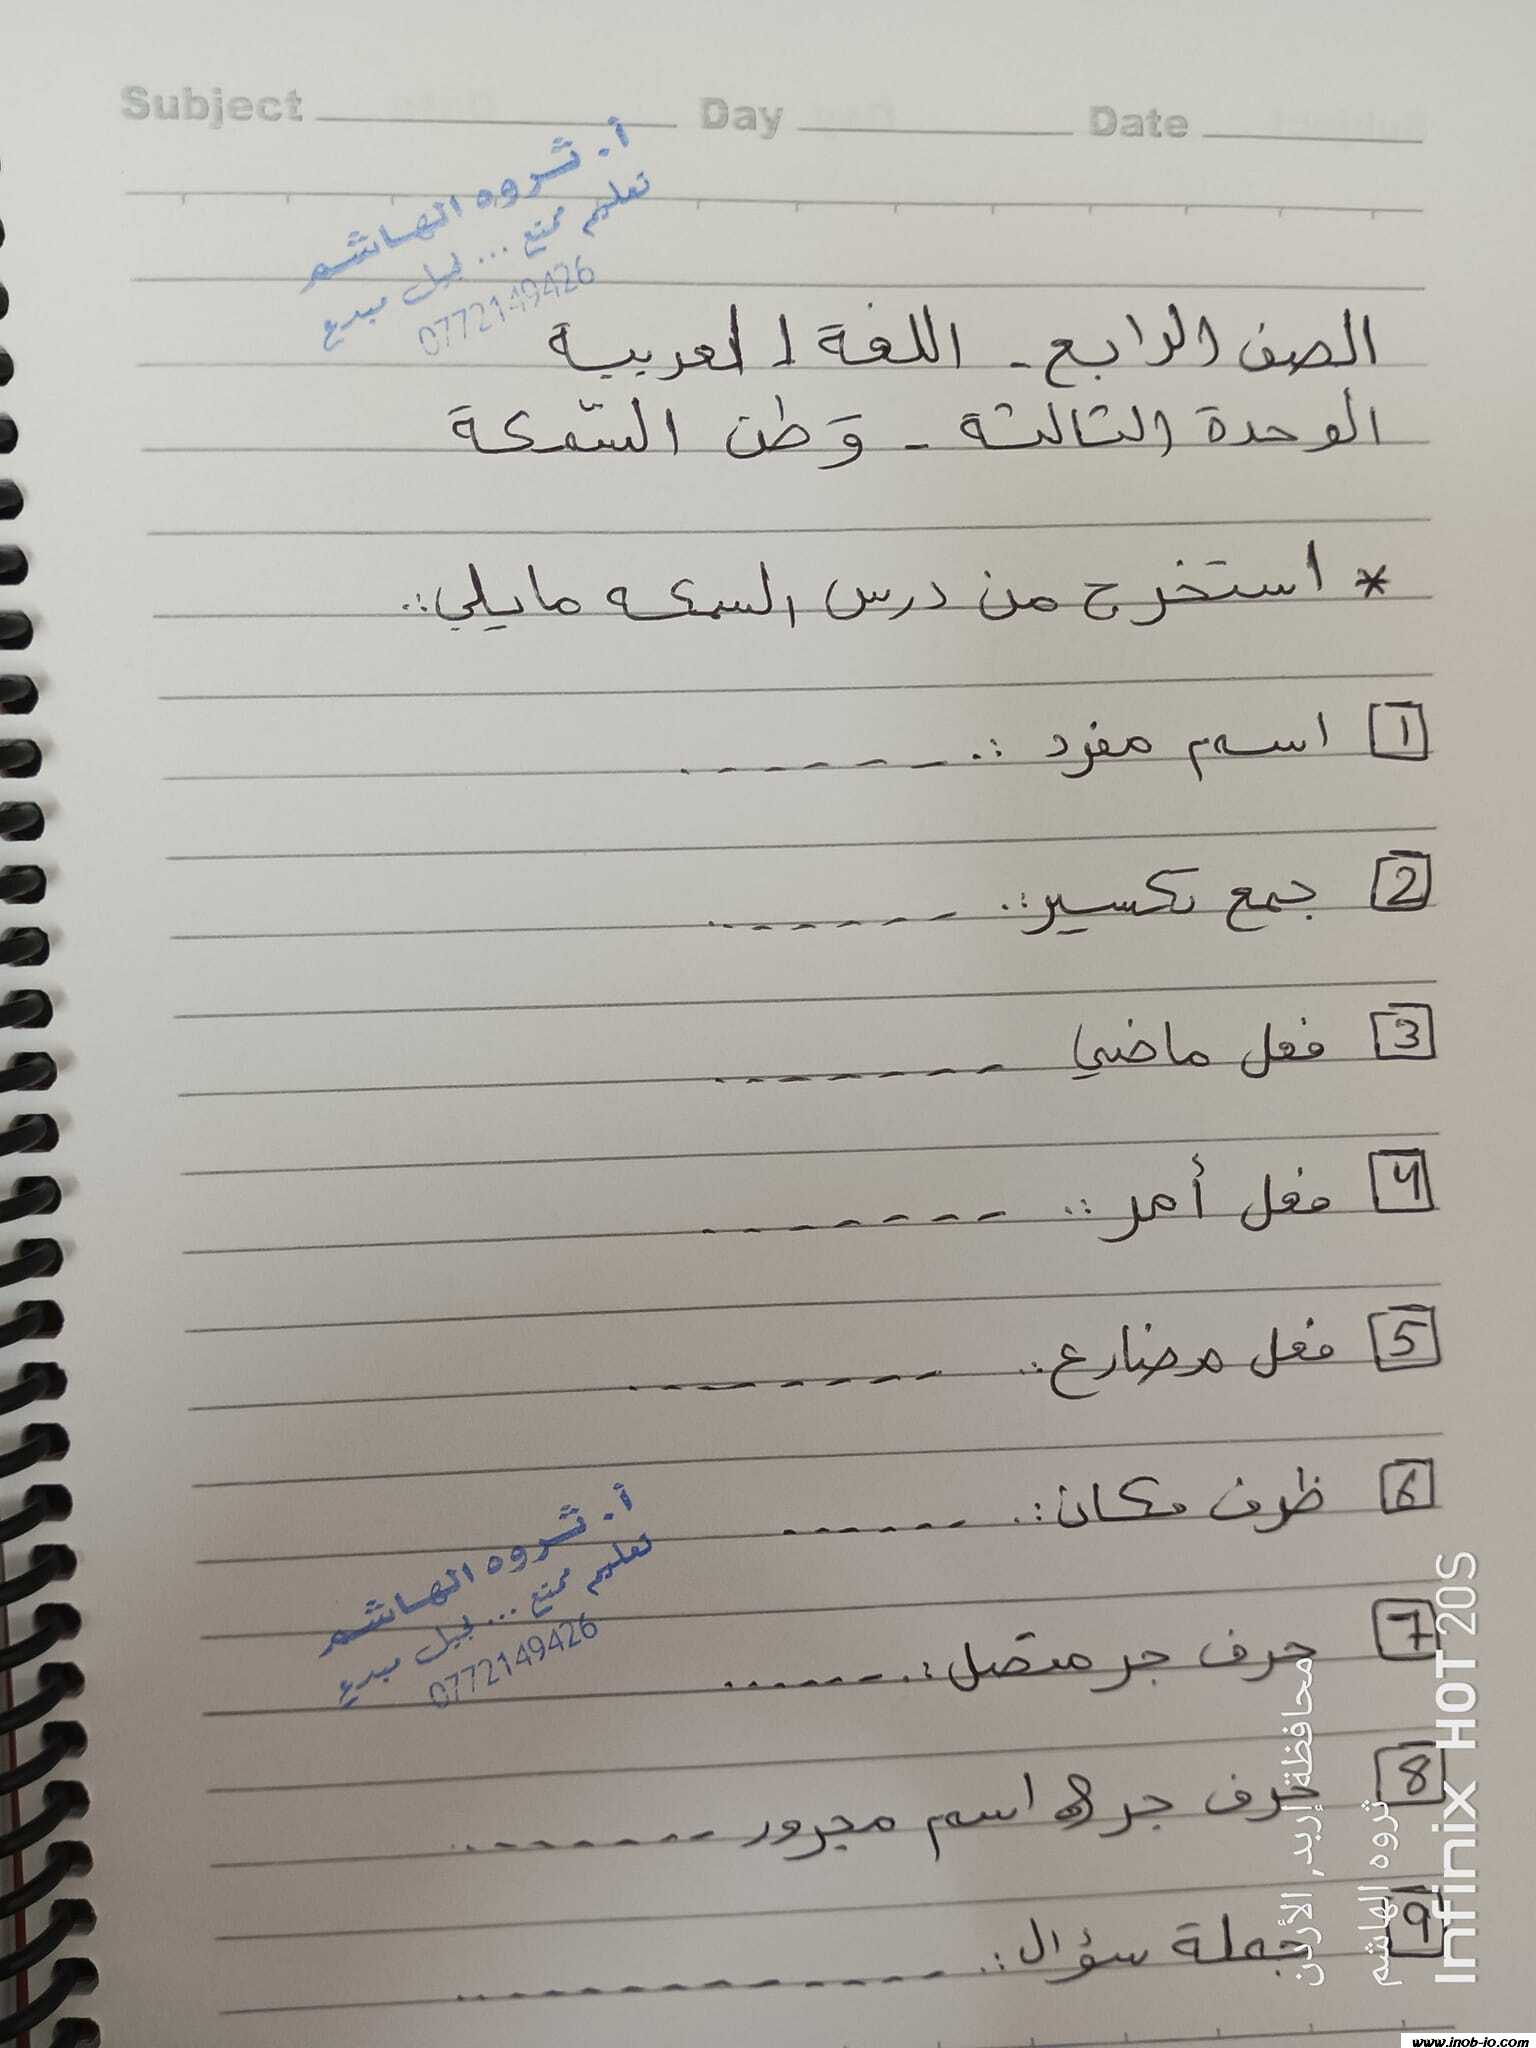 Subject Day Date
أ. ثروه الهاشم
تعليم ممتع ... لجيل مبدع
0772149426
الصف الرابع - اللغة العربية
الوحدة الثالثة - وَطن السّمكة
* استخرج من درس السمكه مايلي :.
1 اسم مفرد :. - - - - - - -
2 جمع تكسير :. - - - - - -
3 فعل ماضي - - - - - - -
4 فعل أمر :. - - - - - - -
5 فعل مضارع :. - - - - - - - -
6 ظرف مكان :. - - - - - -
أ. ثروه الهاشم
تعليم ممتع ... لجيل مبدع
0772149426
7 حرف جر متصل :. - - - - - -
8 حرف جر و اسم مجرور - - - - - - -
9 جملة سؤال :. - - - - - - - - - - -
Infinix HOT 20S
ثروه الهاشم
محافظة إربد, الأردن
www.inob-jo.com